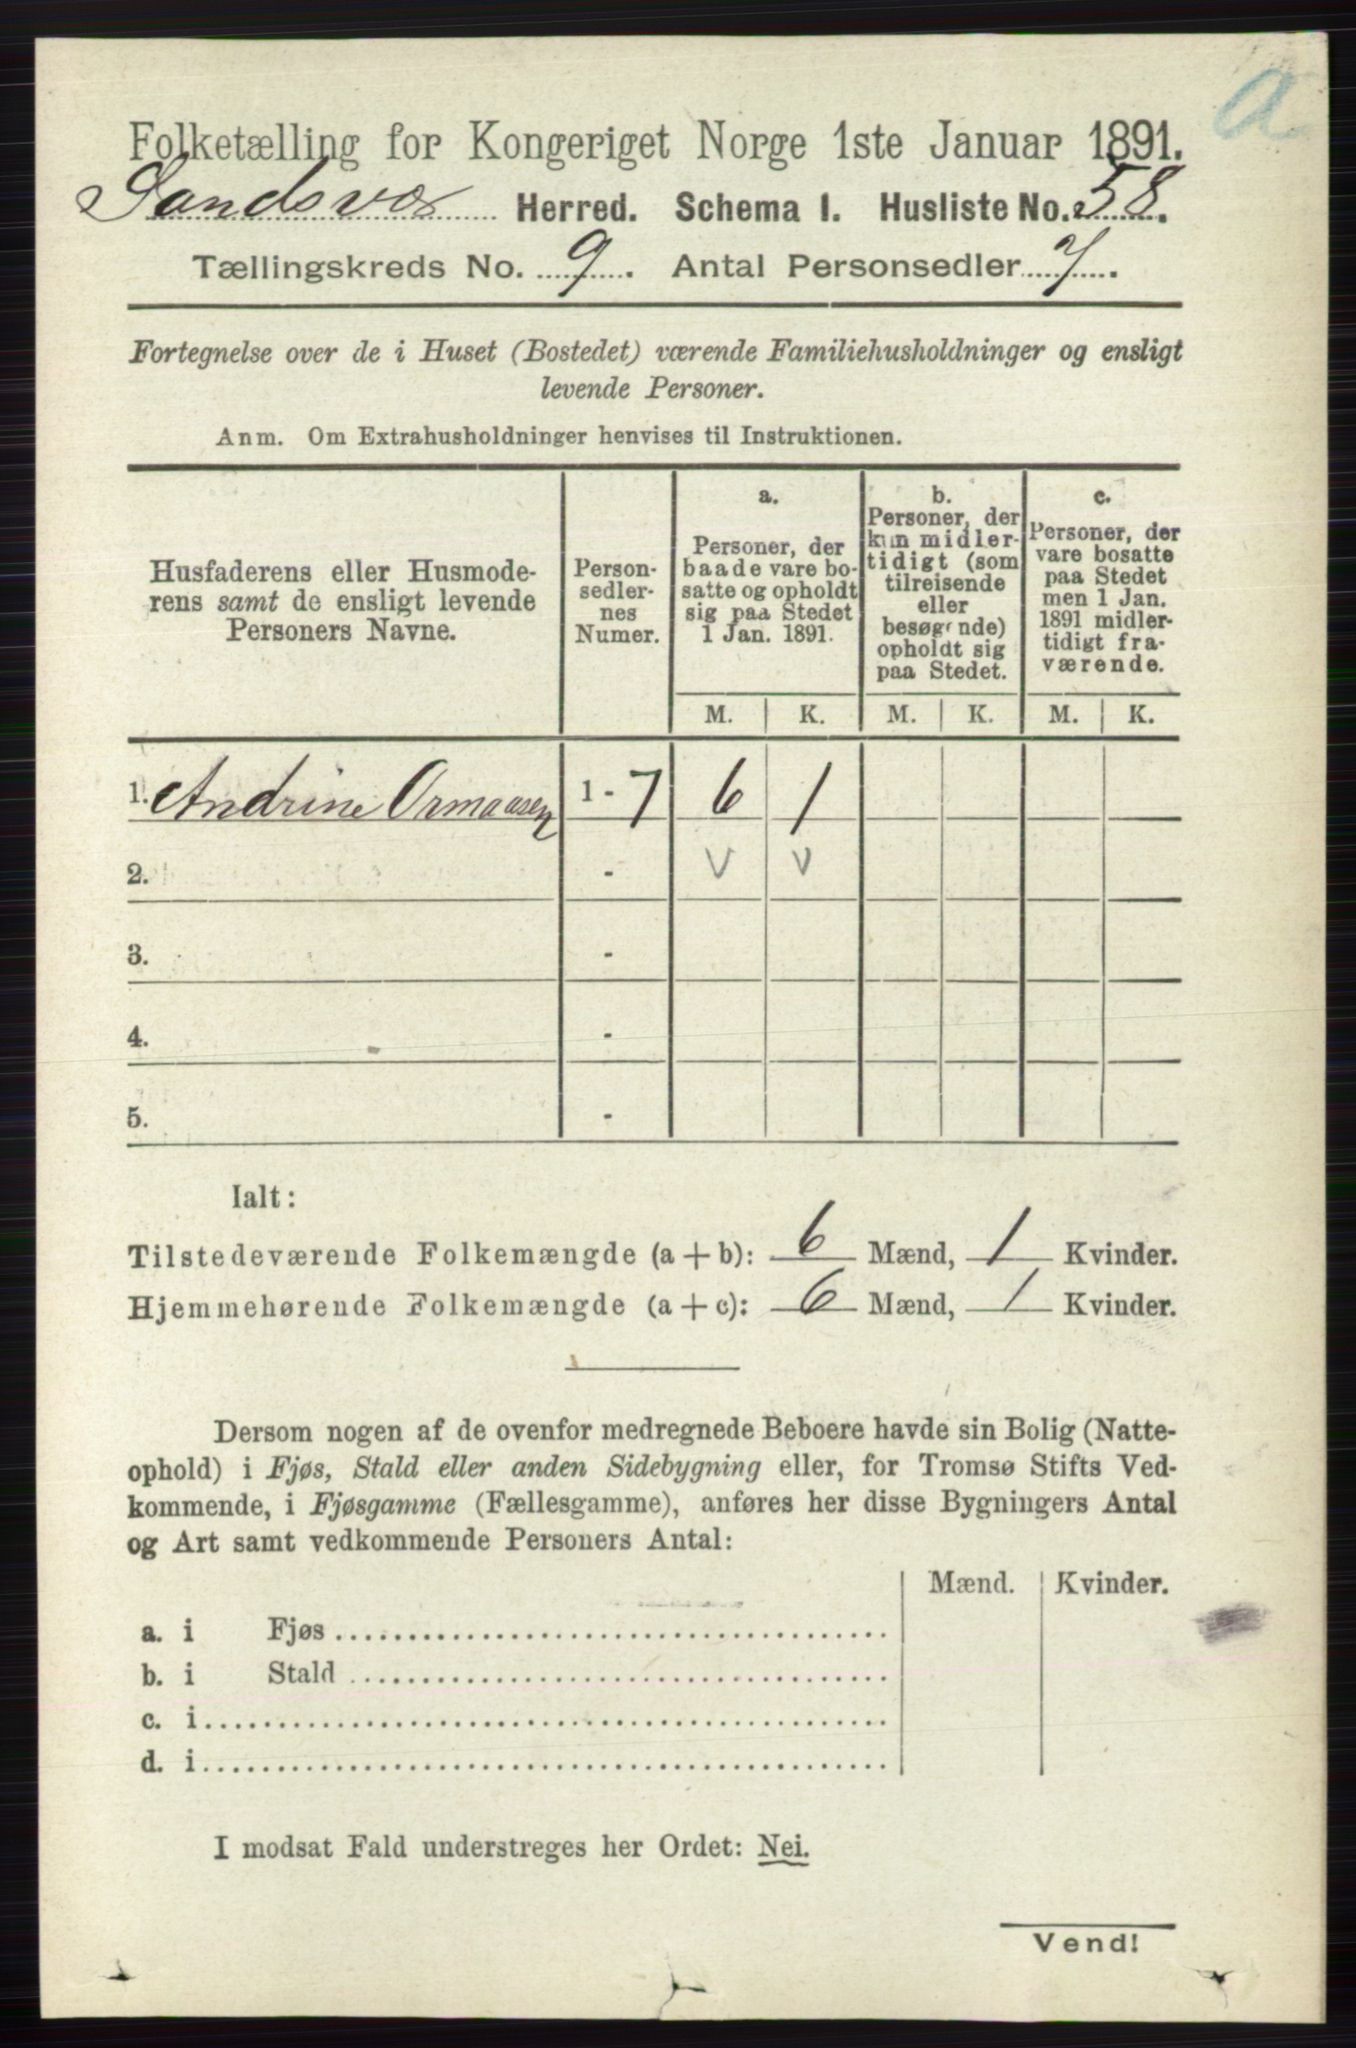 a
Folketælling for Kongeriget Norge 1ste Januar 1891.
Sandsvær Herred. Schema 1. Husliste No. 58.
Tællingskreds No. 9. Antal Personsedler 7.
Fortegnelse over de i Huset (Bostedet) værende Familiehusholdninger og ensligt
levende Personer.
Anm. Om Extrahusholdninger henvises til Instruktionen.
Husfaderens eller Husmode-
rens samt de ensligt levende
Personers Navne.
Person-
sedler-
nes
Numer.
a.
Personer, der
baade vare bo-
satte og opholdt
sig paa Stedet
1 Jan. 1891.
b.
Personer, der
kun midler-
tidigt (som
tilreisende
eller
besøgende)
opholdt sig
paa Stedet.
c.
Personer, der
vare bosatte
paa Stedet
men 1 Jan.
1891 midler-
tidigt fra-
værende.
M. K. M. K. M. K.
1. Andrine Ormaasen 1 - 7 6 1
2. - v v
3. -
4. -
5. -
Ialt:
Tilstedeværende Folkemængde (a + b): 6 Mænd, 1 Kvinder.
Hjemmehørende Folkemængde (a + c): 6 Mænd, 1 Kvinder.
Dersom nogen af de ovenfor medregnede Beboere havde sin Bolig (Natte-
ophold) i Fjøs, Stald eller anden Sidebygning eller, for Tromsø Stifts Ved-
kommende, i Fjøsgamme (Fællesgamme), anføres her disse Bygningers Antal
og Art samt vedkommende Personers Antal:
Mænd. Kvinder.
a. i Fjøs
b. i Stald
c. i
d. i
I modsat Fald understreges her Ordet: Nei.
Vend!